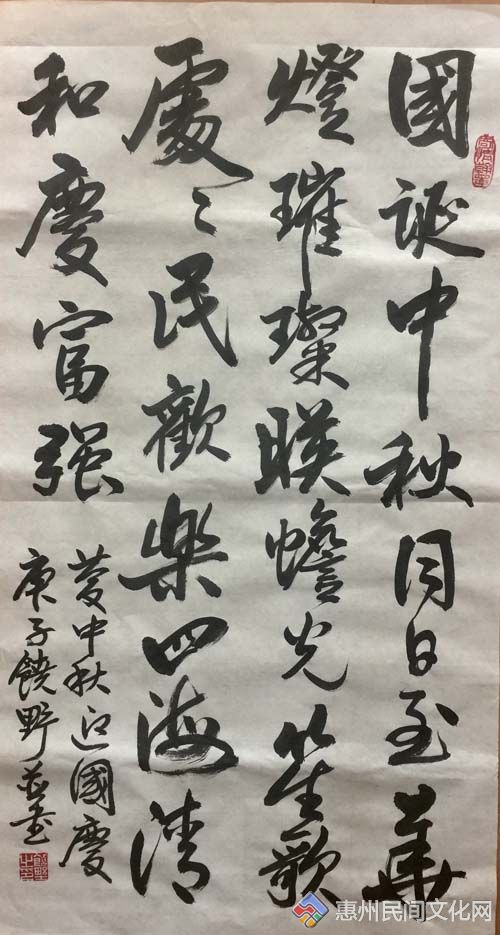 國誕中秋同日至華
燈璀璨映蟾光笙歌
處〻民歡樂四海清
和慶富强
慶中秋迎國慶
庚子饒野並書
惠州民间文化网